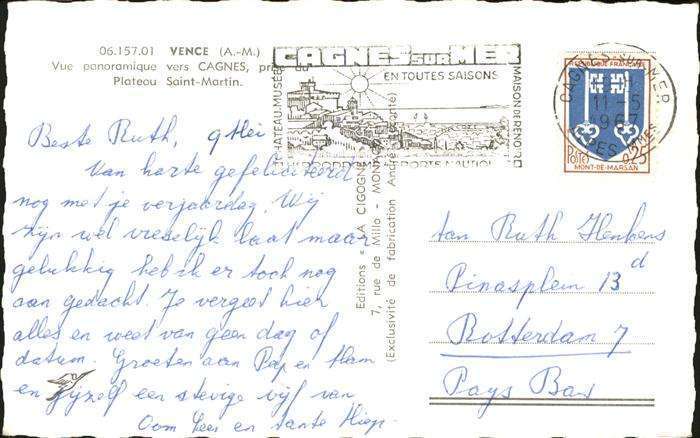 06.157.01 VENCE (A.-M.)
Vue panoramique vers CAGNES, pris du
Plateau Saint-Martin.
CAGNES SUR MER
EN TOUTES SAISONS
CHATEAU-MUSÉE
MAISON DE RENOIR
CAGNES-SUR-MER
11-5
1967
REPUBLIQUE FRANÇAISE
POSTES
0,25
MONT-DE-MARSAN
Editions "LA CIGOGNE"
7, rue de Millo - MONACO
(Exclusivité de fabrication André
Beste Ruth, 9 Mei
Van harte gefeliciteerd
nog met je verjaardag. Wij
zijn wel vreselijk laat maar
gelukkig heb ik er toch nog
aan gedacht. Je vergeet hier
alles en weet van geen dag of
datum. Groeten aan Pap en Mam
en jijzelf een stevige vijf van
Oom Cees en tante Miep
aan Ruth Henkens
Pinasplein 13 d
Rotterdam 7
Pays Bas